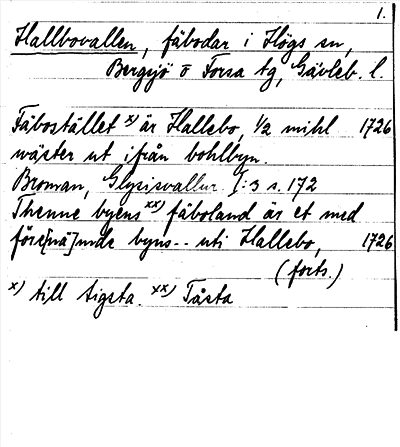 1.
Hallbovallen, fäbodar i Högs sn,
Bergsjö o Forsa tg, Gävleb. l.
Fäbostället x) är Hallebo, 1/2 mihl 1726
wäster ut ifrån bohlbyn.
Broman, Glysisvallur I:3 s. 172
Thenne byens xx) fäboland är et med
före[nä]mde byns.. uti Hallebo, 1726
(forts.)
x) till Tigsta. xx) Tåsta